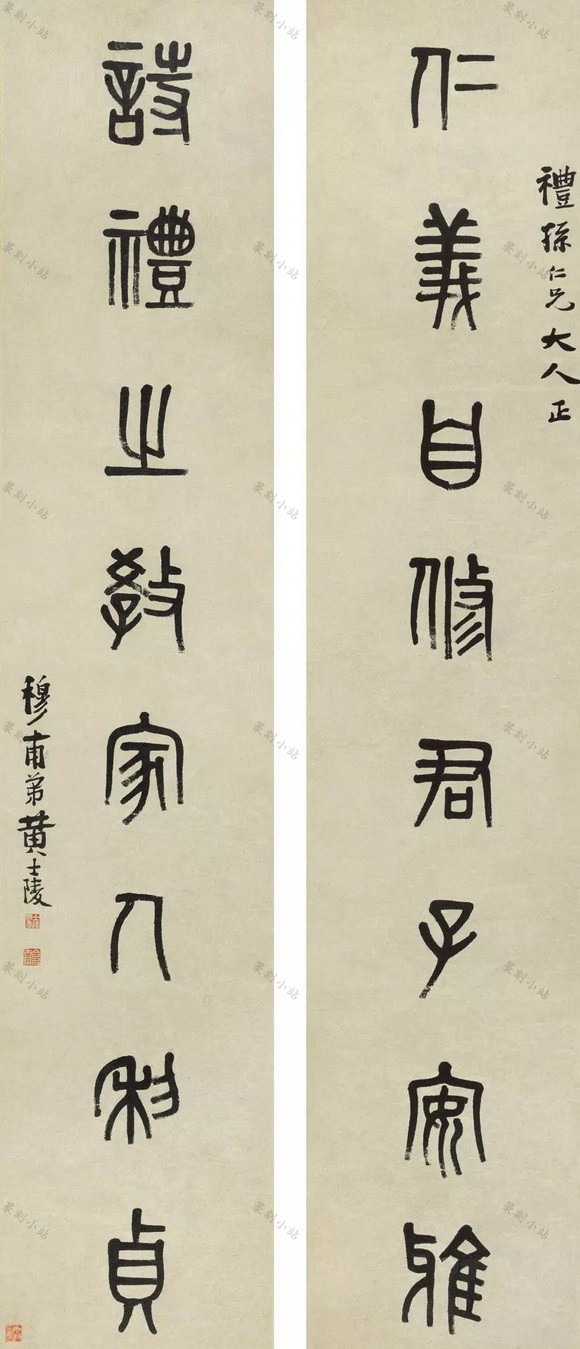 禮孫仁兄大人正
仁義自修君子安雅
詩禮之教家人利貞
穆甫弟黃士陵
篆刻小站